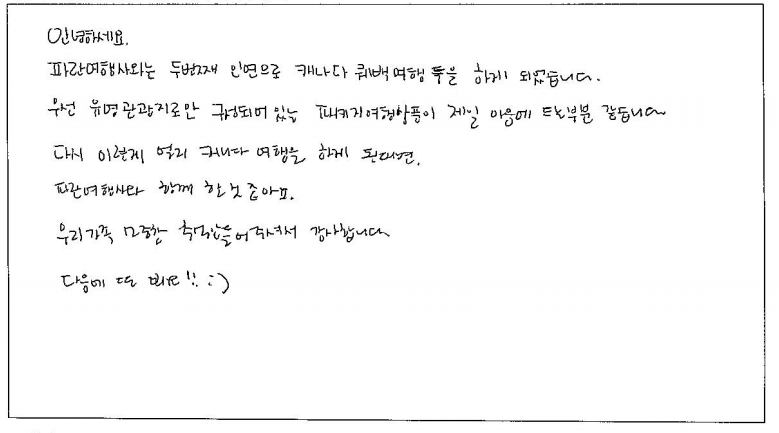 안녕하세요.
파란여행사와는 두번째 인연으로 캐나다 퀘백여행 을 하게 되었습니다.
우선 유명관광지로만 구성되어 있는 패키지여행상품이 제일 마음에 드는부분 같습니다
다시 이렇게 멀리 캐나다 여행을 하게 된다면,
파란여행사와 함께 할 것 같아요.
우리가족 소중한 추억만들어주셔서 감사합니다
다음에 또 봬요!! :)